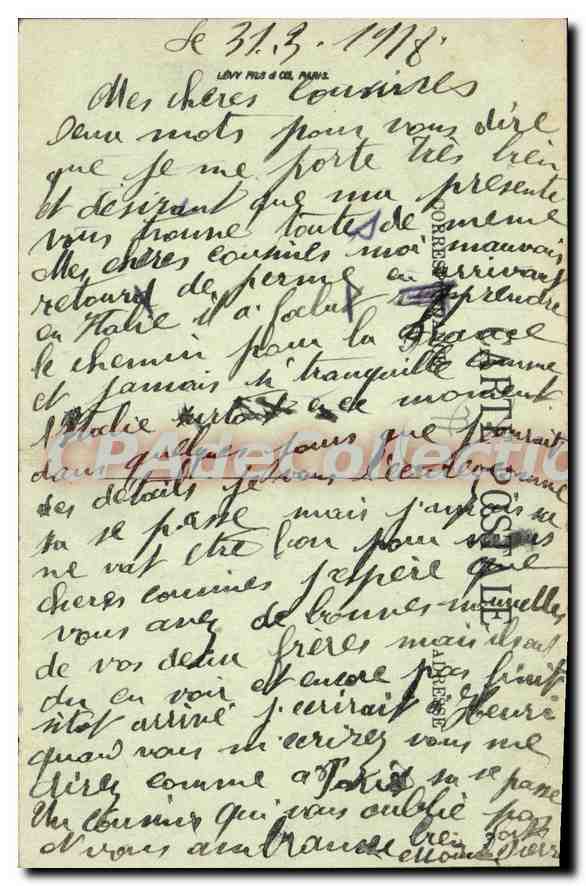 le 31.3.1918.
LÉVY FILS & Cie, PARIS.
Mes cheres cousines
deux mots pour vous dire
que je me porte très bien
et désirant que ma présente
vous trouve toutes de meme
Mes cheres cousines moi mauvais
retour de perme en arrivant
en Italie il a falut reprendre
le chemin pour la France
et jamais si tranquille comme
l'Italie surtout en ce moment
dans quelques jours que j'aurait
des details je vous l'ecrit comme
sa se passe mais jamais sa
ne vat etre bon pour nous
cheres cousines j'espère que
vous avez de bonnes nouvelles
de vos deux frères mais ils ont
du en voir et encore pas finit
sitot arrivé j'ecrirait à Henri
quand vous m'ecrirez vous me
direz comme a Paris sa se passe
Un cousin qui vous oublie pas
et vous embrasse bien fort
Pierre
CARTE POSTALE
CORRESPONDANCE
ADRESSE
CPArteCollection